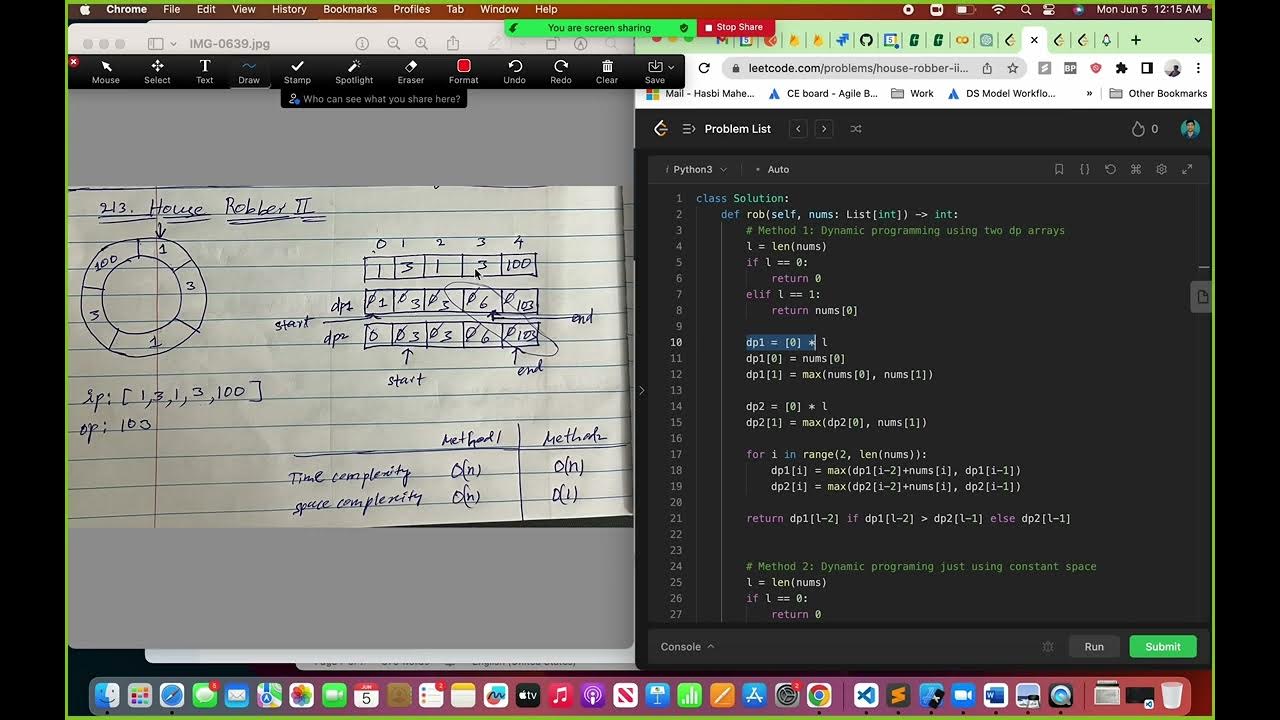 Chrome File Edit View History Bookmarks Profiles Tab Window Help
Mon Jun 5 12:15 AM
You are screen sharing
Stop Share
IMG-0639.jpg
Mouse Select Text Draw Stamp Spotlight Eraser Format Undo Redo Clear Save
Who can see what you share here?
leetcode.com/problems/house-robber-ii...
Mail - Hasbi Mahe... CE board - Agile B... Work DS Model Workflo... » Other Bookmarks
Problem List
0
213. House Robber II
100 1
3
3
1
0 1 2 3 4
1 3 1 3 100
dp1 0 1 0 3 0 3 0 6 0 103
start end
dp2 0 0 3 0 3 0 6 0 103
start end
Ip: [1,3,1,3,100]
op: 103
Method1 Method2
Time complexity O(n) O(n)
space complexity O(n) O(1)
i Python3 • Auto
1 class Solution:
2 def rob(self, nums: List[int]) -> int:
3 # Method 1: Dynamic programming using two dp arrays
4 l = len(nums)
5 if l == 0:
6 return 0
7 elif l == 1:
8 return nums[0]
9
10 dp1 = [0] * l
11 dp1[0] = nums[0]
12 dp1[1] = max(nums[0], nums[1])
13
14 dp2 = [0] * l
15 dp2[1] = max(dp2[0], nums[1])
16
17 for i in range(2, len(nums)):
18 dp1[i] = max(dp1[i-2]+nums[i], dp1[i-1])
19 dp2[i] = max(dp2[i-2]+nums[i], dp2[i-1])
20
21 return dp1[l-2] if dp1[l-2] > dp2[l-1] else dp2[l-1]
22
23
24 # Method 2: Dynamic programing just using constant space
25 l = len(nums)
26 if l == 0:
27 return 0
Console
Run
Submit
English (United States)